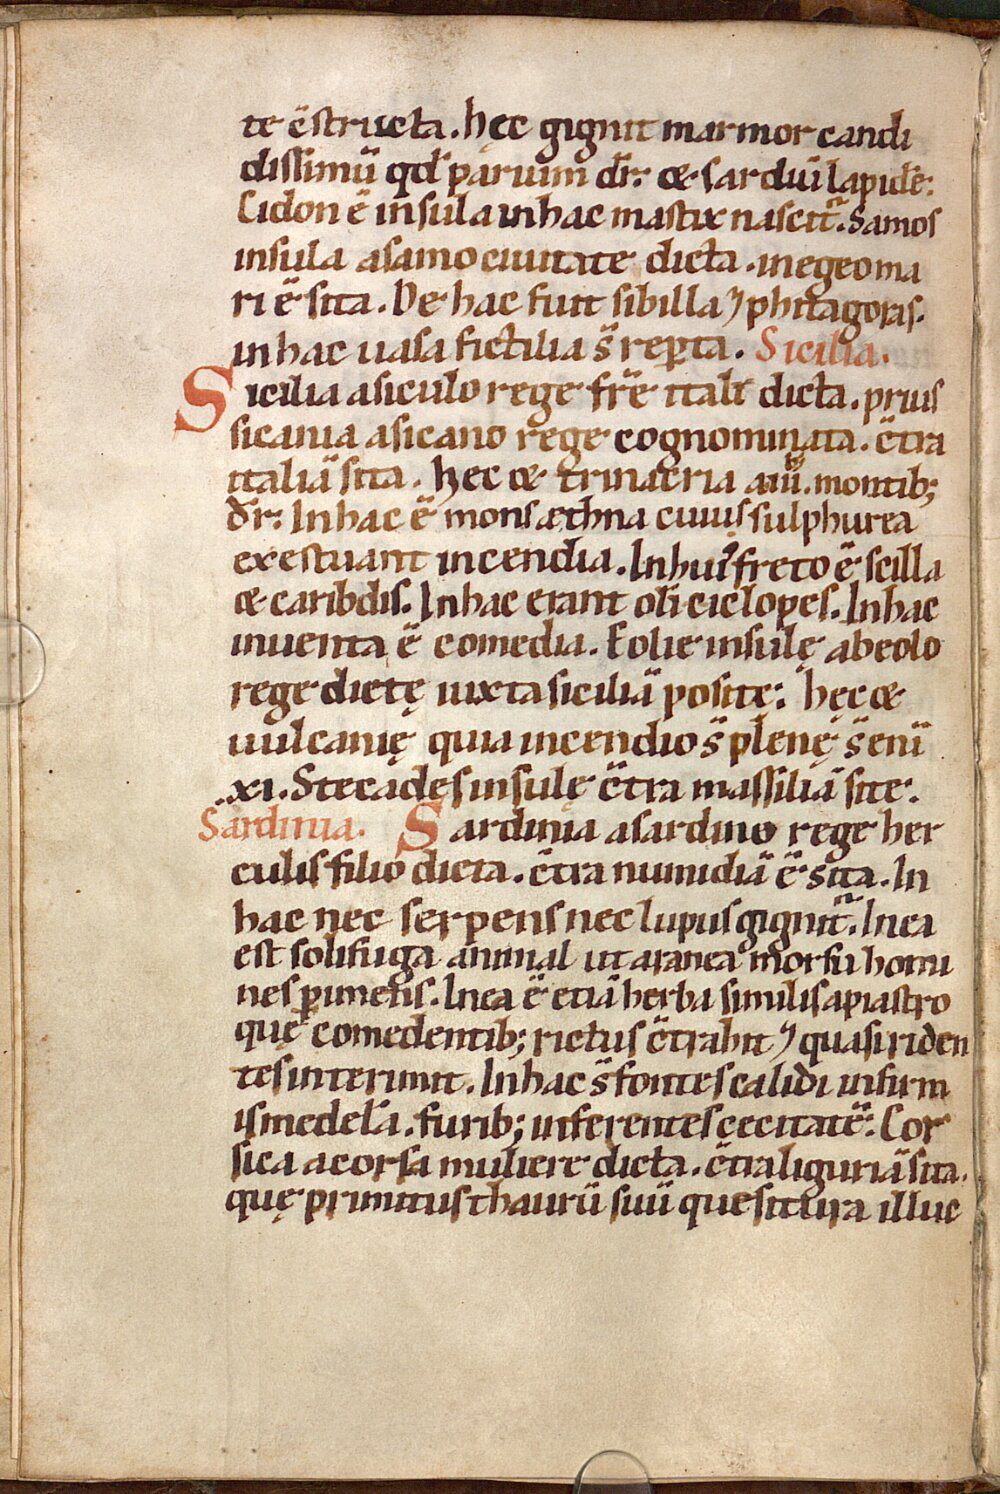 te ēstructa. hęc gignit marmor candi
dissimū qd̄ paruum dr̄: & sarduī lapidē:
Cidon ē insula in hac mastix nascit᷑. Samos
insula a samo ciuitate dicta. in egeo ma
ri ē sita. De hac fuit sibilla ⁊ phitagoras.
in hac uasa fictilia s̄ rep̱ta. Sicilia.
Sicilia a siculo rege fr̄e itali dicta. prius
sicania a sicano rege cognominata. c̄tra
italiā sita. hęc & trinacria a iii. montib;
dr̄: In hac ē mons æthna cuius sulphurea
exestuant incendia. In hui᷒ freto ē scilla
& caribdis. In hac erant oli ciclopes. In hac
inuenta ē comedia. Eolie insulę ab eolo
rege dictę iuxta siciliā positę: hęc &
uulcanię quia incendio s̄ plenę s̄ eni
xi. Stecades insulę c̄tra massiliā site.
Sardinia. Sardinia a sardino rege her
culis filio dicta. c̄tra numidiā ē sita. In
hac nec serpens nec lupus gignit᷑. In ea
est solifuga animal ut aranea morsu homi
nes p̱imens. In ea ē etiā herba similis apiastro
quę comedentib; rictus c̄trahit ⁊ quasi riden
tes interimit. In hac s̄ fontes calidi infirm
is medela. furib; inferentes cecitatē. Cor
sica a corsa muliere dicta. c̄tra liguriā sita.
quę primitus thaurū suū quesitura illuc